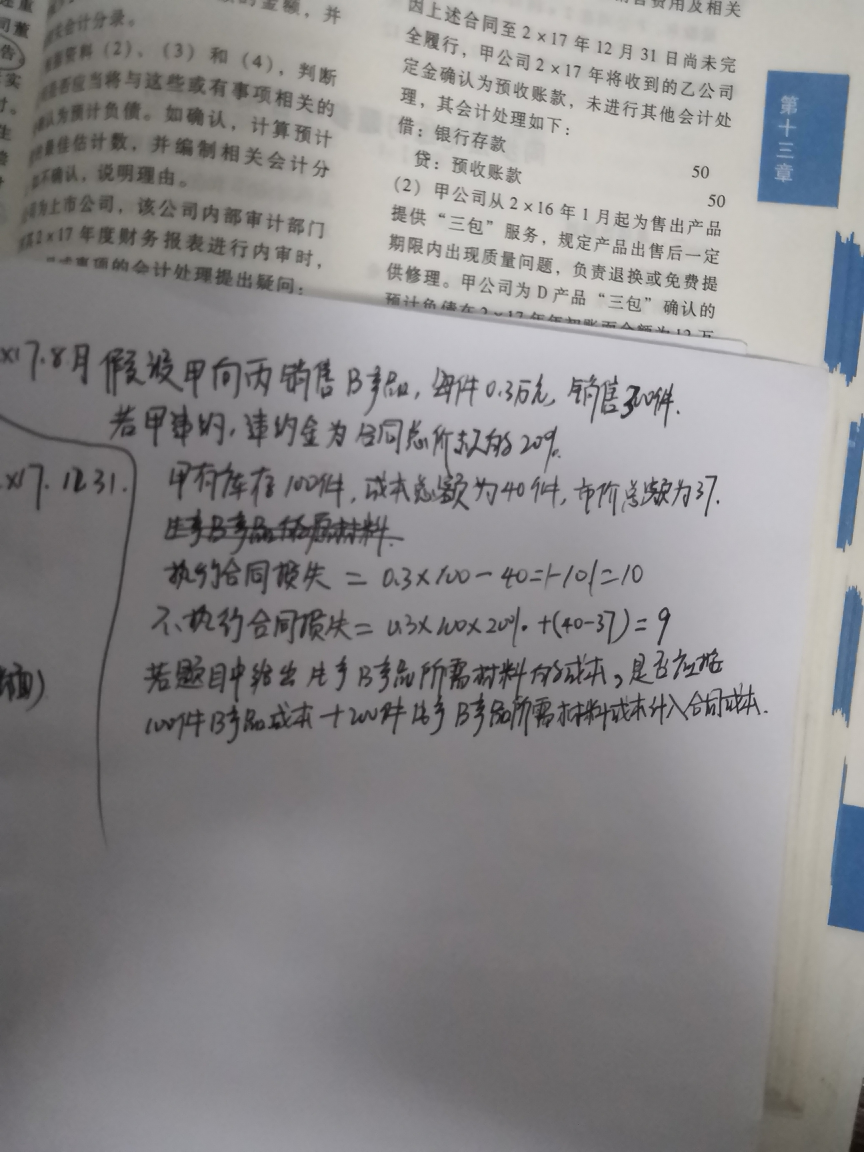 的金额，并
会计分录。
资料（2）、（3）和（4），判断
是否应当将与这些或有事项相关的
确认为预计负债。如确认，计算预计
最佳估计数，并编制相关会计分
如不确认，说明理由。
为上市公司，该公司内部审计部门
2×17年度财务报表进行内审时，
事项的会计处理提出疑问：
费用及相关
因上述合同至2×17年12月31日尚未完
全履行，甲公司2×17年将收到的乙公司
定金确认为预收账款，未进行其他会计处
理，其会计处理如下：
借：银行存款 50
贷：预收账款 50
（2）甲公司从2×16年1月起为售出产品
提供“三包”服务，规定产品出售后一定
期限内出现质量问题，负责退换或免费提
供修理。甲公司为D产品“三包”确认的
预计负债在2×17年年初账面余额为12万
第十三章
×17.8月 假设甲向丙销售B产品，每件0.3万元，销售300件.
若甲违约，违约金为合同总价款的20%.
×17.12.31. 甲有库存100件，成本总额为40件，市价总额为37.
生产B产品 原材料.
执行合同损失 = 0.3×100-40=|-10|=10
不执行合同损失 = 0.3×100×20% +(40-37)=9
若题目中给出生产B产品所需材料的成本，是否应把
100件B产品成本+200件生产B产品所需材料成本计入合同成本.